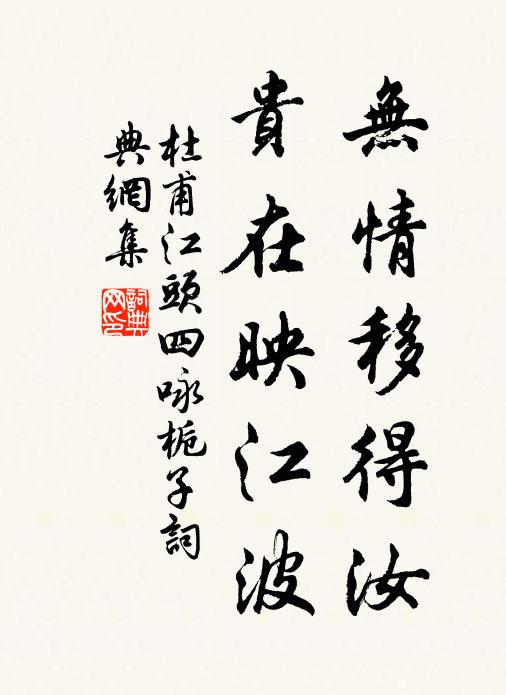 無情移得汝
貴在映江波
杜甫江頭四咏梔子詞
典網集
詞典
网印